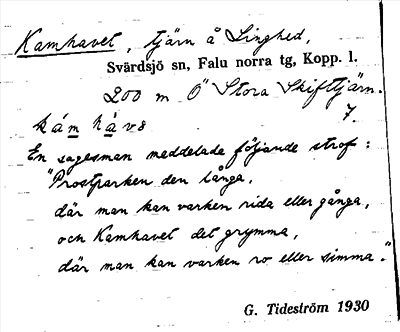 Kamhavet, tjärn å Linghed,
Svärdsjö sn, Falu norra tg, Kopp. l.
200 m Ö Stora Skifttjärn.
7.
kám hàvə
En sagesman meddelade följande strof:
"Prostparken den långa,
där man kan varken rida eller gånga,
och Kamhavet det grymma,
där man kan varken ro eller simma."
G. Tideström 1930